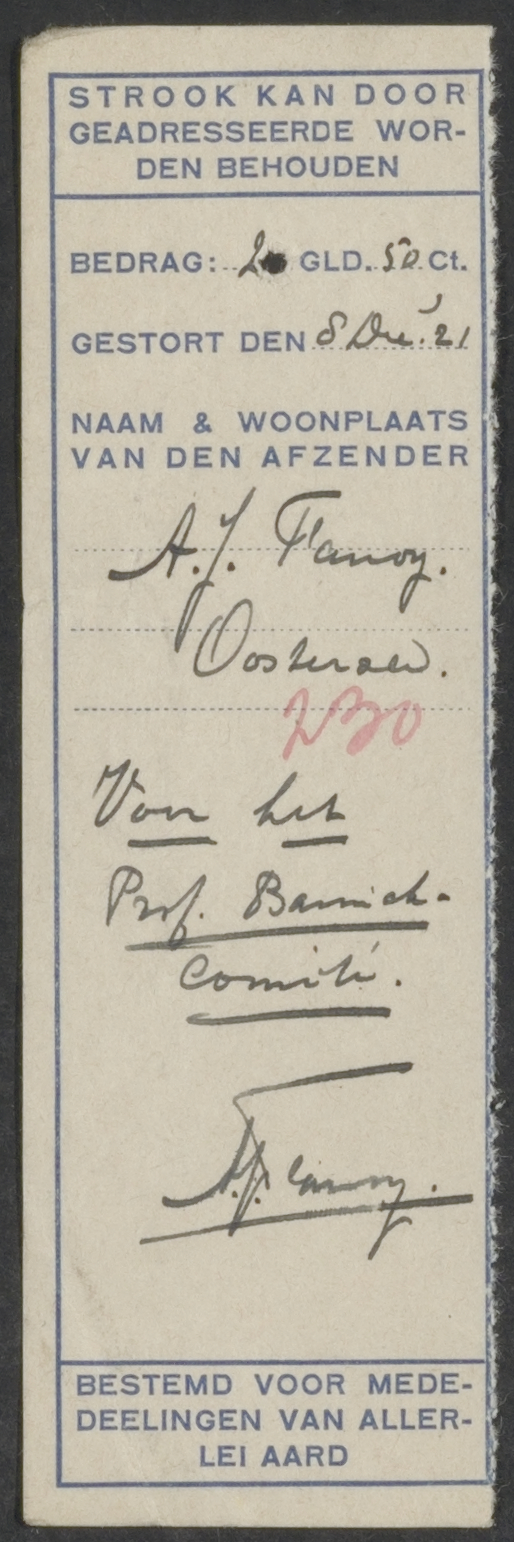 STROOK KAN DOOR
GEADRESSEERDE WOR-
DEN BEHOUDEN
BEDRAG: 2 GLD. 50 Ct.
GESTORT DEN 8 Dec. '21
NAAM & WOONPLAATS
VAN DEN AFZENDER
A.J.
230
Voor het
Prof.
Comité.
BESTEMD VOOR MEDE-
DEELINGEN VAN ALLER-
LEI AARD